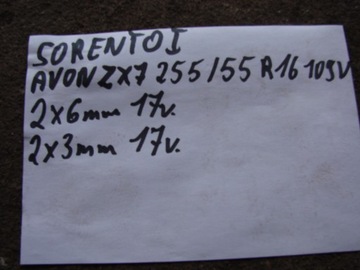 SORENTO I
AVON ZX7 255/55 R16 109V
2x6mm 17v.
2x3mm 17v.